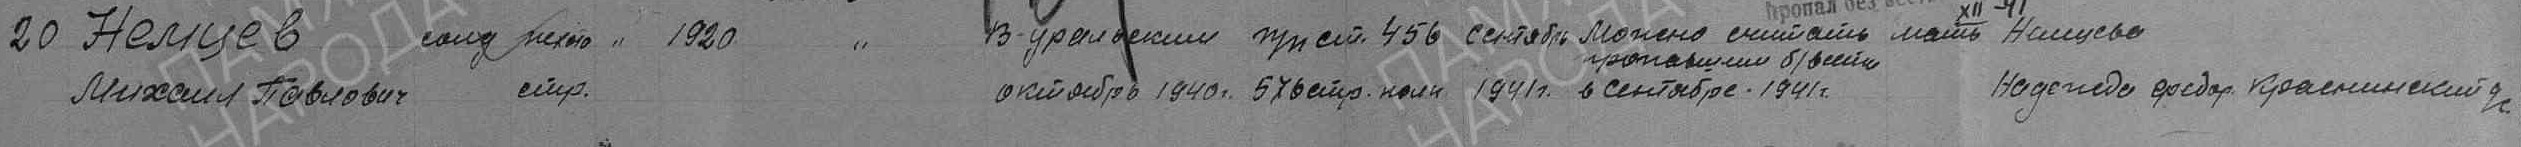 Пропал без вести
XII-41
20 Немцев солд пехота " 1920 " В-уральским ппст. 456 сентябрь Можно считать мать Немцева
пропавшим б/вести
Михаил Павлович стр. октябрь 1940г. 576 стр. полк 1941г. в сентябре - 1941г. Надежда Федор. Краснинский